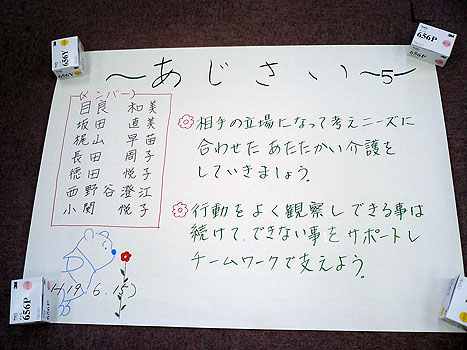 ~あじさい~5~
(メンバー)
目良 和美
坂田 直美
梶山 早苗
長田 周子
徳田 悦子
西野谷澄江
小関 悦子
相手の立場になって考えニーズに
合わせた あたたかい介護を
していきましょう。
行動をよく観察しできる事は
続けて、できない事をサポートし
チームワークで支えよう。
H19.6.15)
656Y
656P
656P
656P